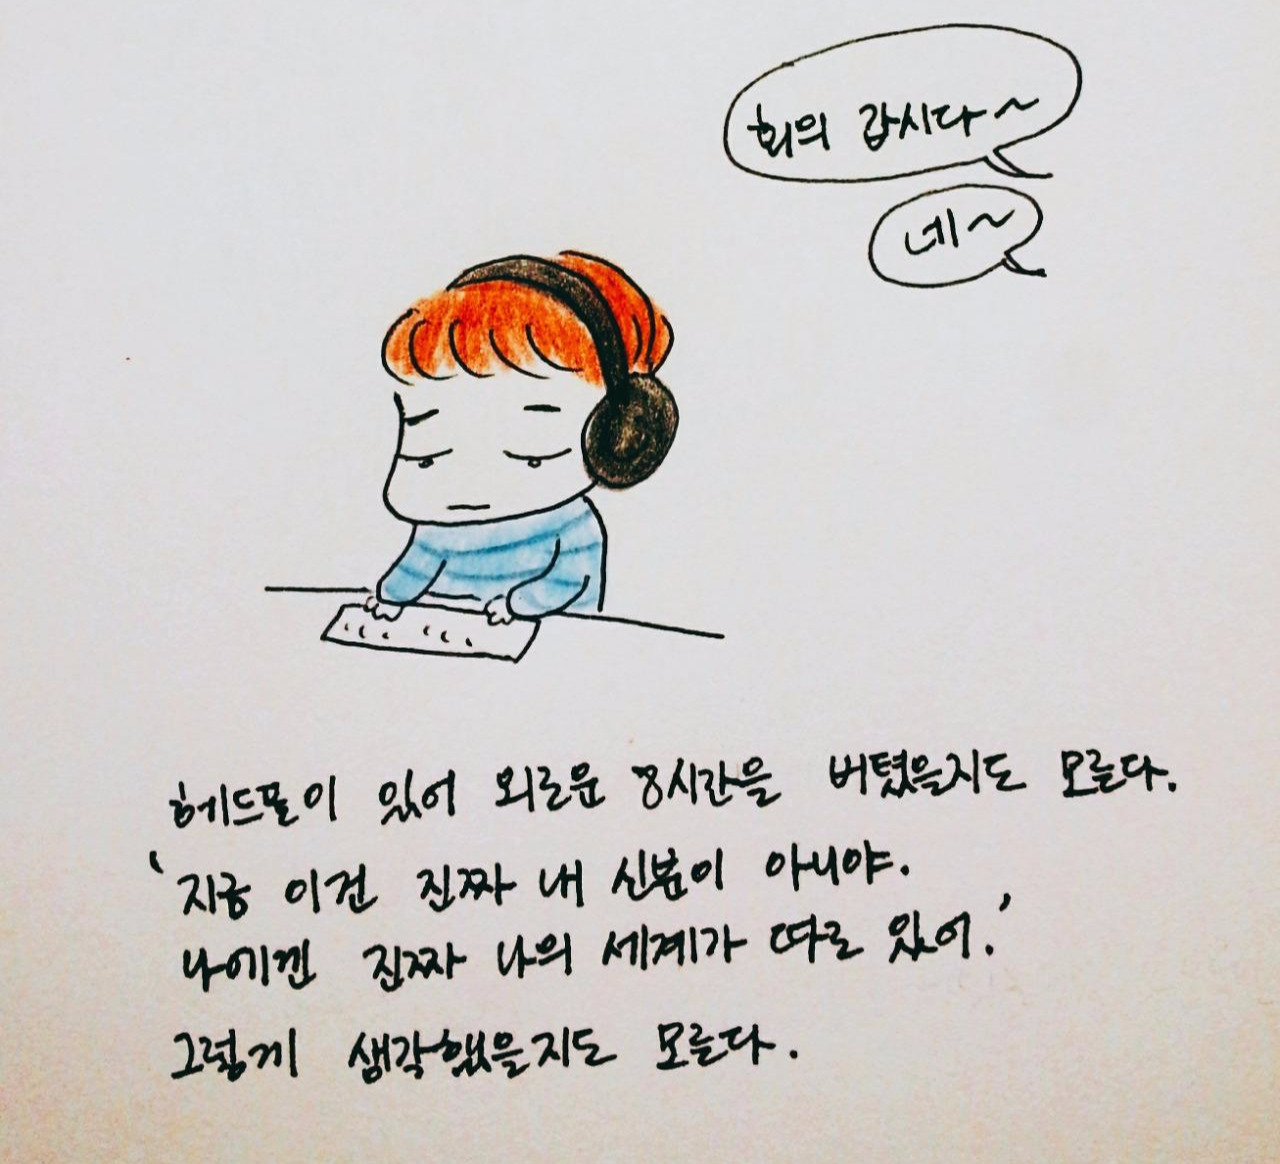 회의 갑시다~
네~
헤드폰이 있어 외로운 8시간을 버텼을지도 모른다.
'지금 이건 진짜 내 신분이 아니야.
나에겐 진짜 나의 세계가 따로 있어.'
그렇게 생각했을지도 모른다.